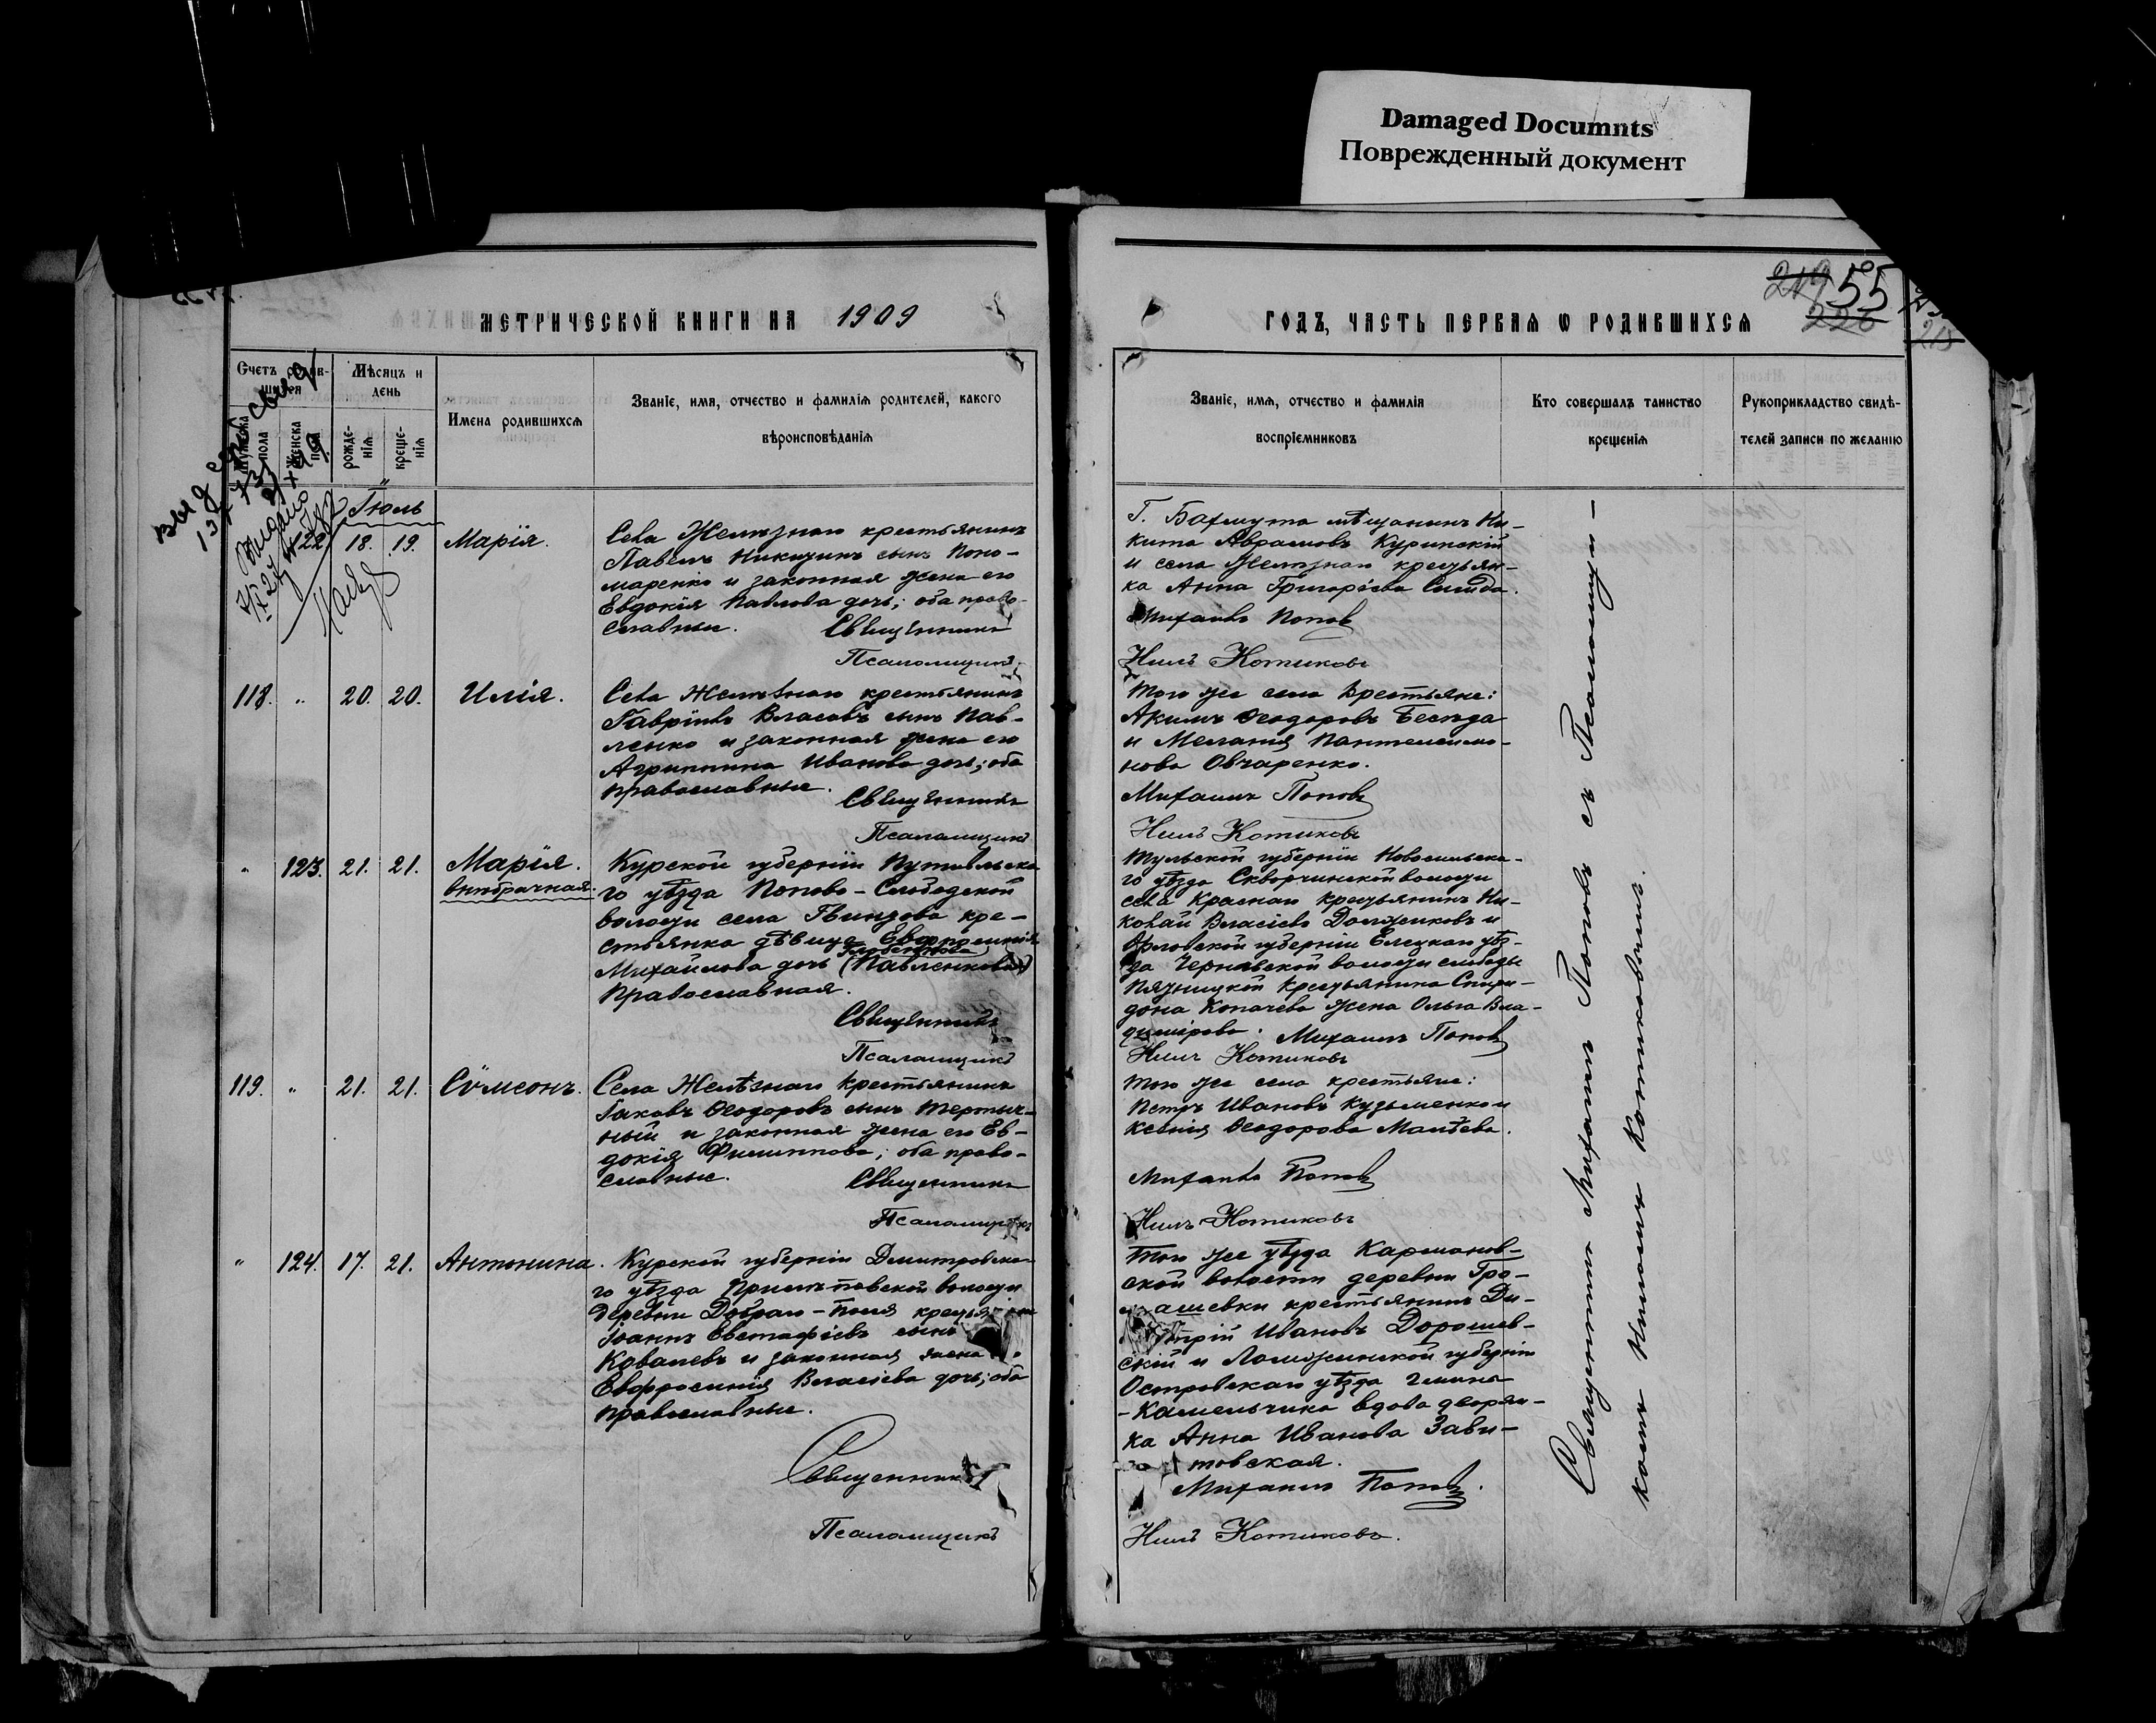 Damaged Documnts
Поврежденный документ
55
МЕТРИЧЕСКОЙ КНИГИ НА 1909
ГОДЪ, ЧАСТЬ ПЕРВАЯ Ѡ РОДИВШИХСѦ
Счетъ родив-
шихся
Мѣсяцъ и
день
Имена родившихсѧ
Званіе, имя, отчество и фамилія родителей, какого
вѣроисповѣданія
мужска пола
женска пола
рожде-
нія
креще-
нія
Званіе, имя, отчество и фамилія
воспріемниковъ
Кто совершалъ таинство
крещенія
Рукоприкладство свидѣ-
телей записи по желанію
Іюль
122 18. 19. Марія.
Села Желѣзнаго крестьянинъ
Павелъ Никитинъ сынъ Поно-
маренко и законная жена его
Евдокія Павлова дочь; оба право-
славные. Священникъ
Псаломщикъ
Г. Бахмута мѣщанинъ Ни-
кита Аврамовъ Куринскій
и села Желѣзнаго крестьян-
ка Анна Григорьева
Михаилъ Поповъ
Нилъ Котиковъ
118. " 20. 20. Илія.
Села Желѣзнаго крестьянинъ
Гавріилъ Власовъ сынъ Пав-
ленко и законная жена его
Агриппина Иванова дочь; оба
православные.
Священникъ
Псаломщикъ
Того же села крестьяне:
Акимъ Ѳеодоровъ Бесѣда
и Меланія Пантелеимо-
нова Овчаренко.
Михаилъ Поповъ
Нилъ Котиковъ
" 123. 21. 21. Марія.
внѣбрачная.
Курской губерніи Путивльска-
го уѣзда Попово-Слободской
волости села Гвинтова кре-
стьянка дѣвица Евфросинія
Михайлова дочь (Павленкова)
Православная.
Священникъ
Псаломщикъ
Тульской губерніи Новосильска-
го уѣзда Скворчинской волости
села Краснаго крестьянинъ Ни-
колай Власіевъ Должиковъ и
Орловской губерніи Елецкаго уѣз-
да Чернавской волости слободы
Пятницкой крестьянина Спири-
дона Копачева жена Ольга Вла-
димірова. Михаилъ Поповъ
Нилъ Котиковъ
119. " 21. 21. Сѵмеонъ.
Села Желѣзнаго крестьянинъ
Іаковъ Ѳеодоровъ сынъ Тертыч-
ный и законная жена его Ев-
докія Филиппова; оба право-
славные.
Священникъ
Псаломщикъ
Того же села крестьяне:
Петръ Ивановъ Кузьменко и
Ксенія Ѳеодорова Малѣева.
Михаилъ Поповъ
Нилъ Котиковъ
" 124. 17. 21. Антонина.
Курской губерніи Дмитровска-
го уѣзда волости
деревни Добраго-Поля
Іоаннъ Евстафіевъ сынъ
Ковалевъ и законная жена
Евфросинія Власіева дочь; оба
православные.
Священникъ
Псаломщикъ
Того же уѣзда Карманов-
ской волости деревни Гро-
машевки крестьянинъ Ди-
митрій Ивановъ Дорошев-
скій и Ломжинской губерніи
Островскаго уѣзда гмина
-Камельчика вдова дворян-
ка Анна Иванова Зави-
товская.
Михаилъ Поповъ.
Нилъ Котиковъ.
Священникъ Михаилъ Поповъ съ Псаломщи-
комъ Ниломъ Котиковымъ.